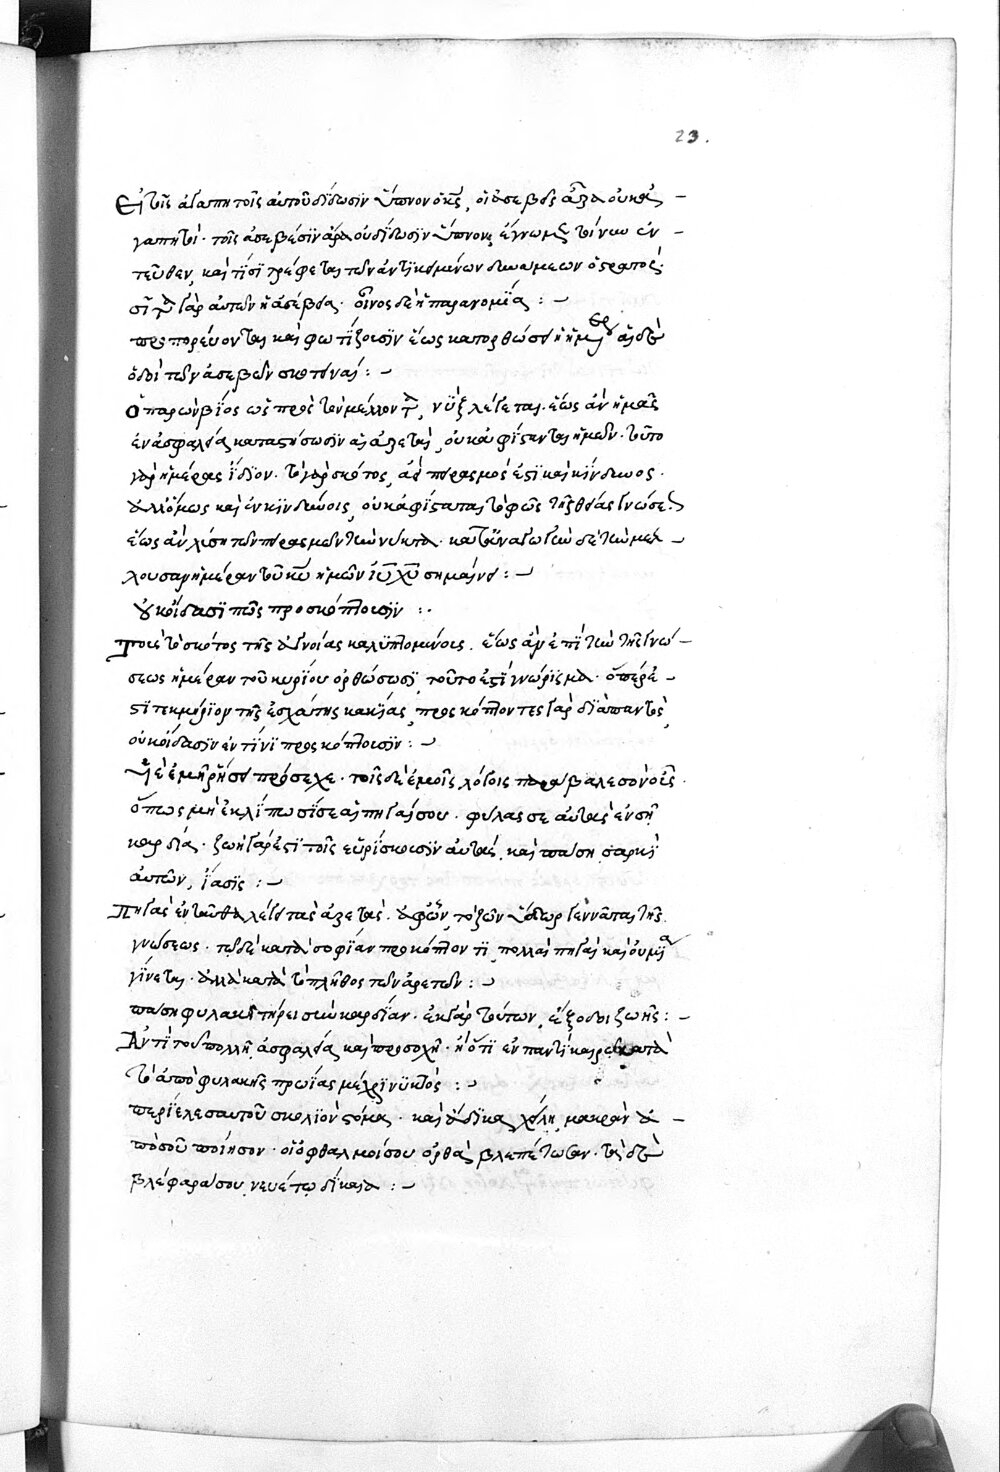 23.
Εἰ τοῖς ἀγαπητοῖς αὐτοῦ δίδωσιν ὕπνον ὁ κς, οἱ ἀσεβεῖς ἄρα οὐκ ἀ
γαπητοί· τοῖς ἀσεβέσιν ἄρα οὐ δίδωσιν ὕπνον, ἔγνωμεν τοίνυν ἐν
τεῦθεν, καὶ τίσι τρέφεται τῶν ἀντικειμένων δυνάμεων ὁ στρατός·
σῖτος γὰρ αὐτῶν ἡ ἀσέβεια· οἶνος δὲ ἡ παρανομία :
προπορεύονται καὶ φωτίζουσιν ἕως κατορθώσει ἡ ἡμέρα αἱ δὲ
ὁδοὶ τῶν ἀσεβῶν σκοτειναί :
Ὁ παρὼν βίος ὡς πρὸς τὸν μέλλοντα, νὺξ λέγεται· ἕως ἂν ἡμᾶς
ἐν ἀσφαλείᾳ καταστήσωσιν αἱ ἀρεταί, οὐκ ἀφίστανται ἡμῶν· τοῦτο
γὰρ ἡμέρας ἴδιον· τὸ γὰρ σκότος, ἀεὶ πειρασμός ἐστι καὶ κίνδυνος·
ἀλλ' ὅμως καὶ ἐν κινδύνοις, οὐκ ἀφίσταται τὸ φῶς τῆς θείας γνώσεως
ἕως ἂν λύσῃ τῶν πειρασμῶν τὴν νύκτα· κατ' ἀναγωγὴν δὲ τὴν μέλ
λουσαν ἡμέραν τοῦ κυ ἡμῶν ιυ χυ σημαίνει :
οὐκ οἴδασι πῶς προσκόπτουσιν :
Τοῖς τὸ σκότος τῆς ἀγνοίας καλυπτομένοις· ἕως ἂν ἐπὶ τὴν τῆς γνώ
σεως ἡμέραν τοῦ κυρίου ὀρθώσωσι, τοῦτο ἐστὶ γνώρισμα· ὅπερ ἐ
στὶ τεκμήριον τῆς ἐσχάτης κακίας, προσκόπτοντες γὰρ διὰ παντός,
οὐκ οἴδασιν ἐν τίνι προσκόπτουσιν :
Υἱὲ ἐμῇ ῥήσει πρόσεχε· τοῖς δὲ ἐμοῖς λόγοις παράβαλε σὸν οὖς·
ὅπως μὴ ἐκλίπωσί σε αἱ πηγαί σου· φύλασσε αὐτὰς ἐν σῇ
καρδίᾳ· ζωὴ γάρ ἐστι τοῖς εὑρίσκουσιν αὐτάς, καὶ πάσῃ σαρκὶ
αὐτῶν, ἴασις :
Πηγὰς ἐνταῦθα λέγει τὰς ἀρετάς· ἀφ' ὧν τὸ ζῶν ὕδωρ γεννᾶται τῆς
γνώσεως· τῷ δὲ κατὰ σοφίαν προκόπτοντι, πολλαὶ πηγαὶ καὶ οὐ μία
γίνεται· ἀλλὰ κατὰ τὸ πλῆθος τῶν ἀρετῶν :
πάσῃ φυλακῇ τήρει σὴν καρδίαν· ἐκ γὰρ τούτων, ἔξοδοι ζωῆς :
Ἀντὶ τοῦ πολλῇ ἀσφαλείᾳ καὶ προσοχῇ· ἢ ὅτι ἐν παντὶ καιρῷ κατὰ
τὸ ἀπὸ φυλακῆς πρωίας μέχρι νυκτός :
περίελε σαυτοῦ σκολιὸν στόμα· καὶ ἄδικα χείλη μακρὰν ἀ
πὸ σοῦ ποίησον· οἱ ὀφθαλμοί σου ὀρθὰ βλεπέτωσαν· τὰ δὲ
βλέφαρά σου, νευέτω δίκαια :